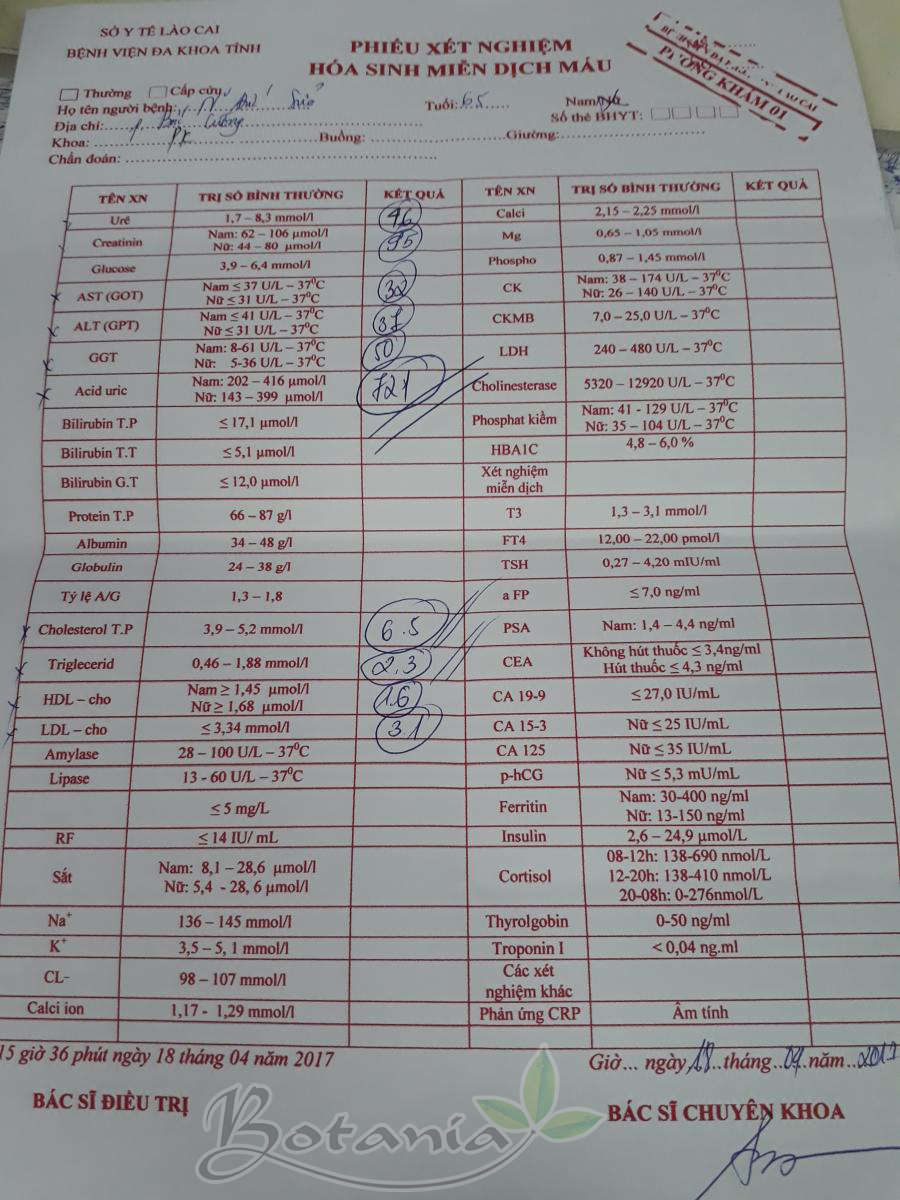 SỞ Y TẾ LÀO CAI
BỆNH VIỆN ĐA KHOA TỈNH
PHIẾU XÉT NGHIỆM
HÓA SINH MIỄN DỊCH MÁU
PHÒNG KHÁM 01
Thường Cấp cứu
Họ tên người bệnh: Tuổi: 65 Nam/Nữ
Địa chỉ: Cường Số thẻ BHYT:
Khoa: PK Buồng: Giường:
Chẩn đoán:
TÊN XN TRỊ SỐ BÌNH THƯỜNG KẾT QUẢ TÊN XN TRỊ SỐ BÌNH THƯỜNG KẾT QUẢ
Urê 1,7 – 8,3 mmol/l Calci 2,15 – 2,25 mmol/l
Creatinin Nam: 62 – 106 µmol/l 95 Mg 0,65 – 1,05 mmol/l
Nữ: 44 – 80 µmol/l
Glucose 3,9 – 6,4 mmol/l Phospho 0,87 – 1,45 mmol/l
AST (GOT) Nam ≤ 37 U/L – 37⁰C 32 CK Nam: 38 – 174 U/L – 37⁰C
Nữ ≤ 31 U/L – 37⁰C Nữ: 26 – 140 U/L – 37⁰C
ALT (GPT) Nam ≤ 41 U/L – 37⁰C 37 CKMB 7,0 – 25,0 U/L – 37⁰C
Nữ ≤ 31 U/L – 37⁰C
GGT Nam: 8-61 U/L – 37⁰C 50 LDH 240 – 480 U/L – 37⁰C
Nữ: 5-36 U/L – 37⁰C
Acid uric Nam: 202 – 416 µmol/l 721 Cholinesterase 5320 – 12920 U/L – 37⁰C
Nữ: 143 – 399 µmol/l
Bilirubin T.P ≤ 17,1 µmol/l Phosphat kiềm Nam: 41 - 129 U/L – 37⁰C
Nữ: 35 – 104 U/L – 37⁰C
Bilirubin T.T ≤ 5,1 µmol/l HBA1C 4,8 – 6,0 %
Bilirubin G.T ≤ 12,0 µmol/l Xét nghiệm
miễn dịch
Protein T.P 66 – 87 g/l T3 1,3 – 3,1 mmol/l
Albumin 34 – 48 g/l FT4 12,00 – 22,00 pmol/l
Globulin 24 – 38 g/l TSH 0,27 – 4,20 mIU/ml
Tỷ lệ A/G 1,3 – 1,8 a FP ≤ 7,0 ng/ml
Cholesterol T.P 3,9 – 5,2 mmol/l 6.5 PSA Nam: 1,4 – 4,4 ng/ml
Triglecerid 0,46 – 1,88 mmol/l 2.3 CEA Không hút thuốc ≤ 3,4ng/ml
Hút thuốc ≤ 4,3 ng/ml
HDL – cho Nam ≥ 1,45 µmol/l 1.6 CA 19-9 ≤ 27,0 IU/mL
Nữ ≥ 1,68 µmol/l
LDL – cho ≤ 3,34 mmol/l 3.1 CA 15-3 Nữ ≤ 25 IU/mL
Amylase 28 – 100 U/L – 37⁰C CA 125 Nữ ≤ 35 IU/mL
Lipase 13 - 60 U/L – 37⁰C p-hCG Nữ ≤ 5,3 mU/mL
≤ 5 mg/L Ferritin Nam: 30-400 ng/ml
Nữ: 13-150 ng/ml
RF ≤ 14 IU/ mL Insulin 2,6 – 24,9 µmol/L
Sắt Nam: 8,1 – 28,6 µmol/l Cortisol 08-12h: 138-690 nmol/L
Nữ: 5,4 - 28, 6 µmol/l 12-20h: 138-410 nmol/L
20-08h: 0-276nmol/L
Na⁺ 136 – 145 mmol/l Thyrolgobin 0-50 ng/ml
K⁺ 3,5 – 5, 1 mmol/l Troponin I < 0,04 ng.ml
CL- 98 – 107 mmol/l Các xét
nghiệm khác
Calci ion 1,17 - 1,29 mmol/l Phản ứng CRP Âm tính
15 giờ 36 phút ngày 18 tháng 04 năm 2017 Giờ... ngày 18 tháng 04 năm 2017
BÁC SĨ ĐIỀU TRỊ BÁC SĨ CHUYÊN KHOA
Botania